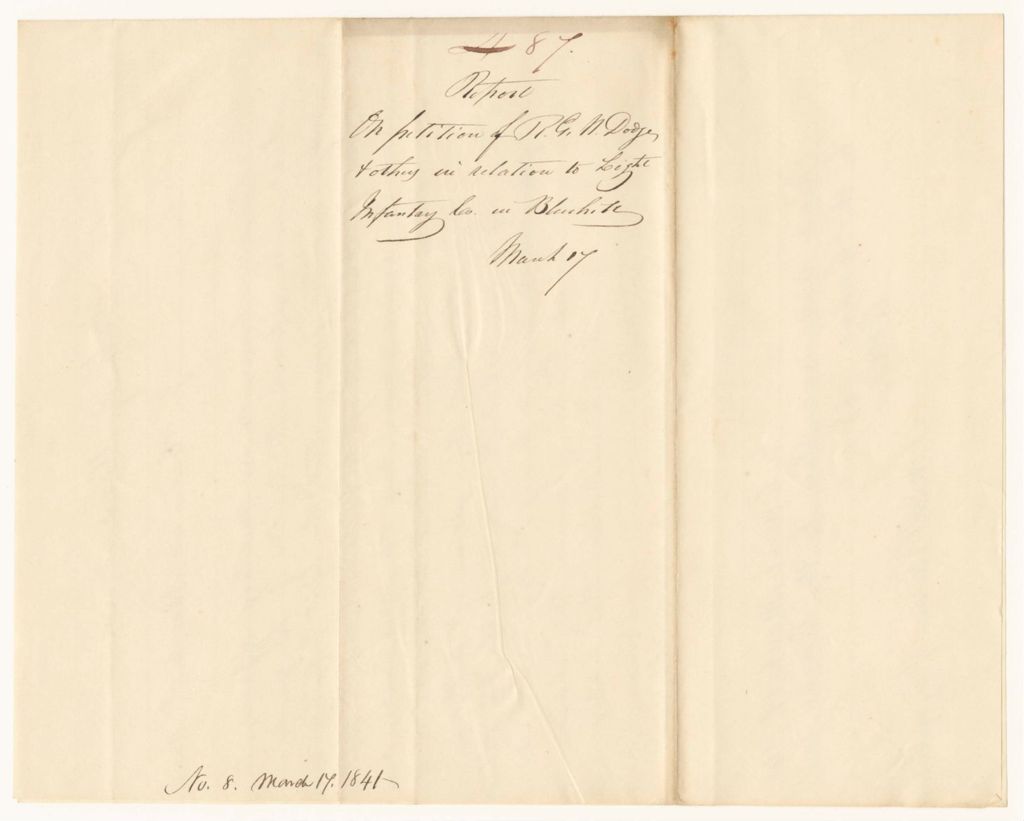 87.
Report
On petition of R. G. W. Dodge
& others in relation to Light
Infantry Co. in Bluehill
March 17
No. 8. March 17. 1841